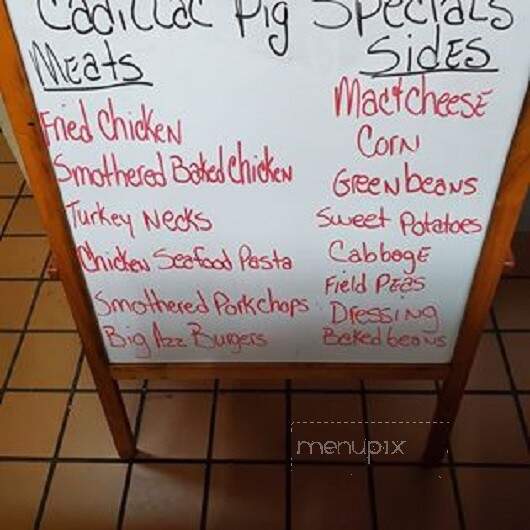 Cadillac Pig Specials
Meats
Fried Chicken
Smothered Baked Chicken
Turkey Necks
Chicken Seafood Pasta
Smothered Porkchops
Big Azz Burgers
Sides
Mac+cheese
Corn
Green beans
Sweet Potatoes
Cabbage
Field Peas
Dressing
Baked beans
menupix